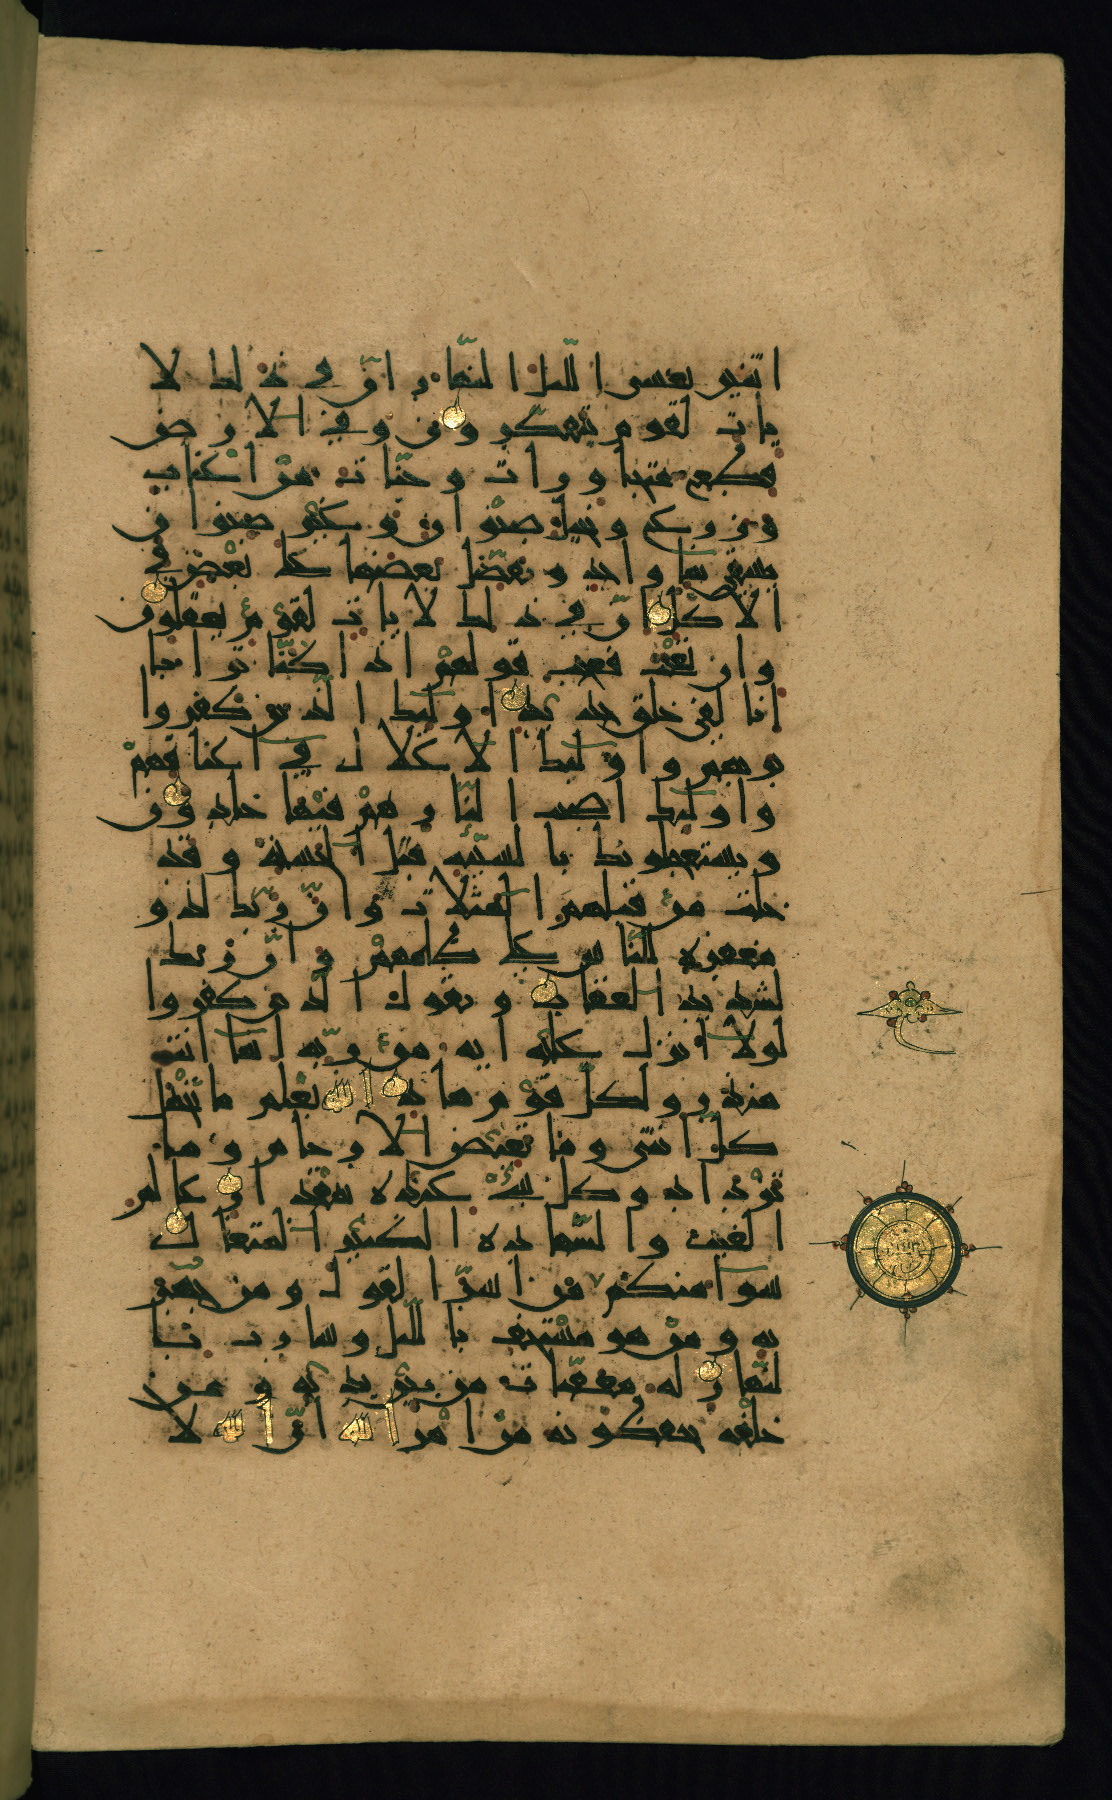 اثنين يغشى الليل النهار ان في ذلك لا
يات لقوم يتفكرون وفي الارض
قطع متجاورات وجنات من اعناب
وزرع ونخيل صنوان وغير صنوان
يسقى بما واحد ونفضل بعضها على بعض في
الاكل ان في ذلك لايات لقوم يعقلون
وان تعجب فعجب قولهم اذا كنا ترابا
انا لفي خلق جديد اولئك الذين كفروا
بربهم واولئك الاغلال في اعناقهم
واولئك اصحب النار هم فيها خالدون
ويستعجلونك بالسيئة قبل الحسنة وقد
خلت من قبلهم المثلات وان ربك لذو
مغفرة للناس على ظلمهم وان ربك
لشديد العقاب ويقول الذين كفروا
لولا انزل عليه اية من ربه انما انت
منذر ولكل قوم هاد الله يعلم ما تحمل
كل انثى وما تغيض الارحام وما
تزداد وكل شيء عنده بمقدار عالم
الغيب والشهادة الكبير المتعال
سوا منكم من اسر القول ومن جهر
به ومن هو مستخف بالليل وسارب با
لنهار له معقبات من بين يديه ومن
خلفه يحفظونه من امر الله ان الله لا